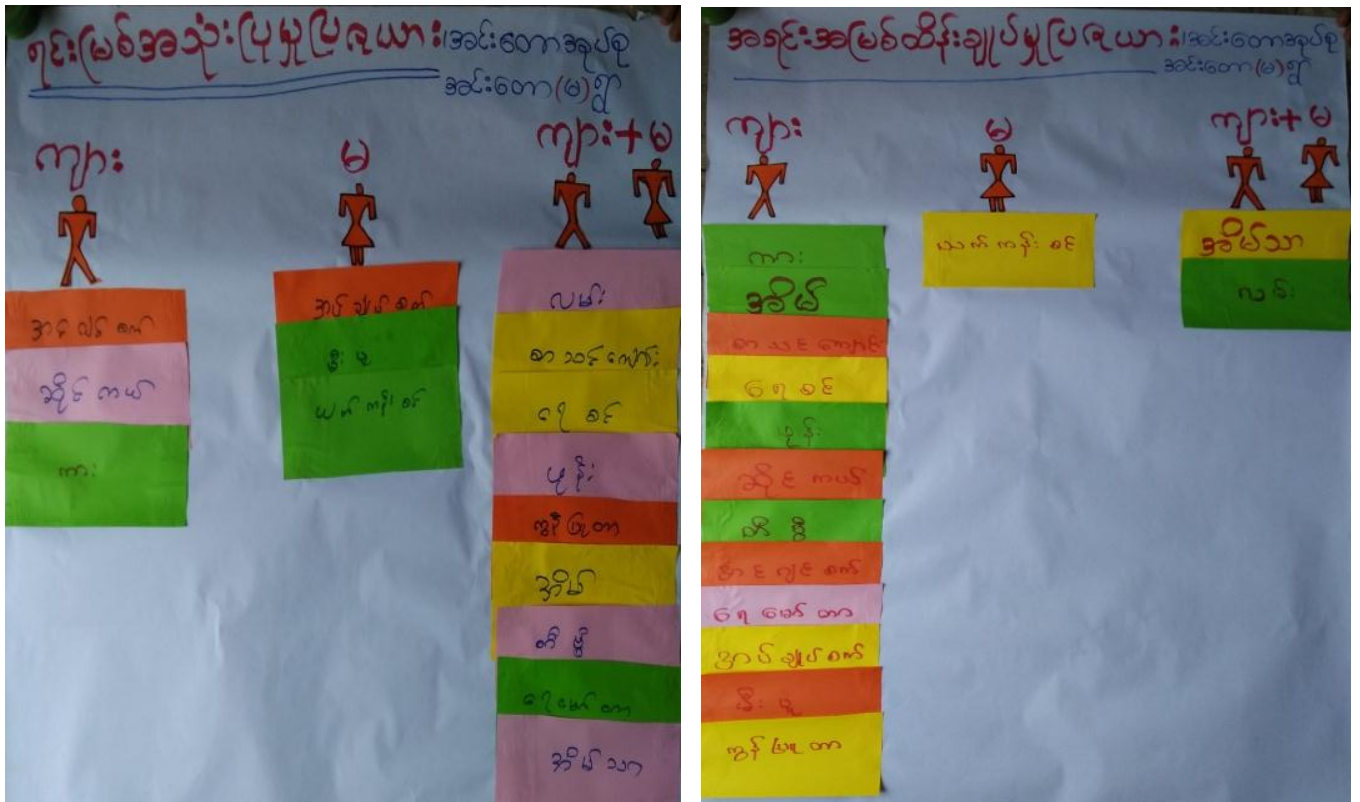 ရင်းမြစ်အသုံးပြုမှုပြဇယား၊အင်းတောအုပ်စု
အင်းတော(မ)ရွာ
ကျား
မ
ကျား+မ
ဆိုင်ကယ်
ကား
အပ်ချုပ်စက်
မီးပူ
ယက်ကန်းစင်
လမ်း
စာသင်ကျောင်း
ရေစင်
ဖုန်း
ကွန်ပြူတာ
အိမ်
တီဗွီ
ရေမော်တာ
အိမ်သာ
အရင်းအမြစ်ထိန်းချုပ်မှုပြဇယား၊အင်းတောအုပ်စု
အင်းတော(မ)ရွာ
ကျား
မ
ကျား+မ
ကား
အိမ်
စာသင်ကျောင်း
ရေစင်
ဖုန်း
ဆိုင်ကယ်
တီဗွီ
အင်ဂျင်စက်
ရေမော်တာ
အပ်ချုပ်စက်
မီးပူ
ကွန်ပြူတာ
ယက်ကန်းစင်
အိမ်သာ
လမ်း